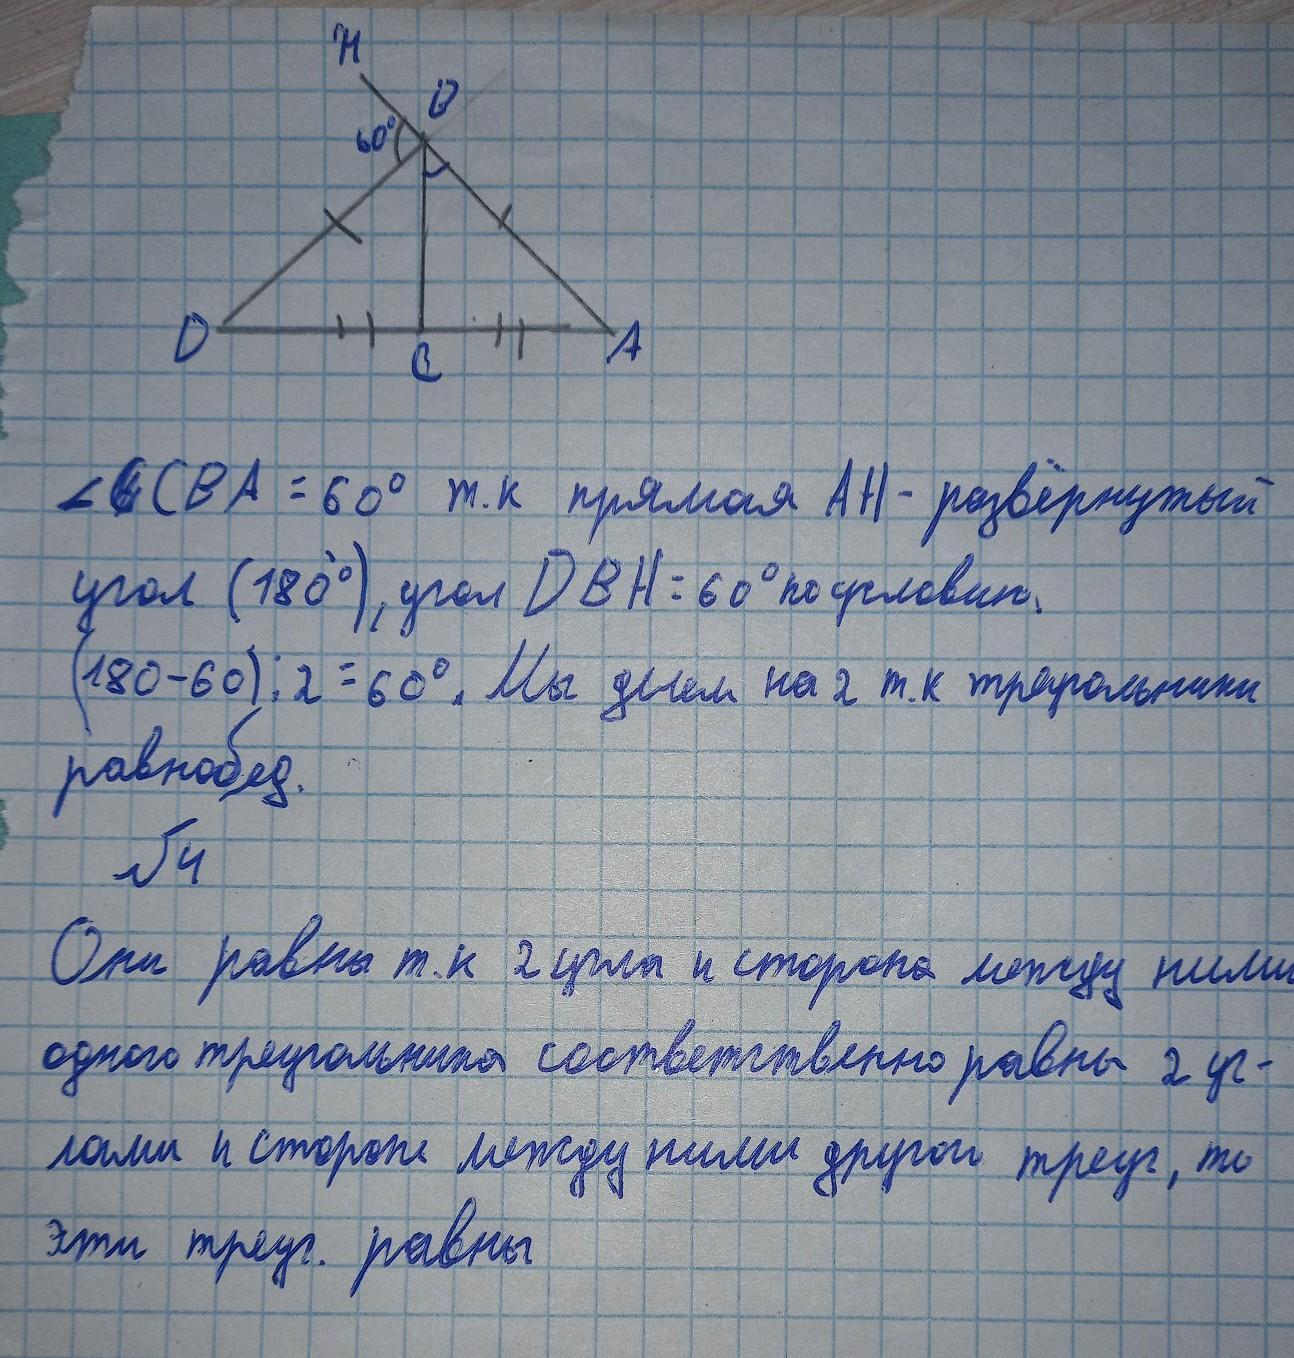 H
B
60°
D
C
A
∠CBA = 60° т.к прямая AH - развёрнутый
угол (180°), угол DBH = 60° по условию.
(180-60):2=60°. Мы делем на 2 т.к треугольники
равнобед.
√4
Они равны т.к 2 угла и сторона между ними
одного треугольника соответственно равны 2 уг-
лами и стороне между ними другого треуг, то
эти треуг. равны